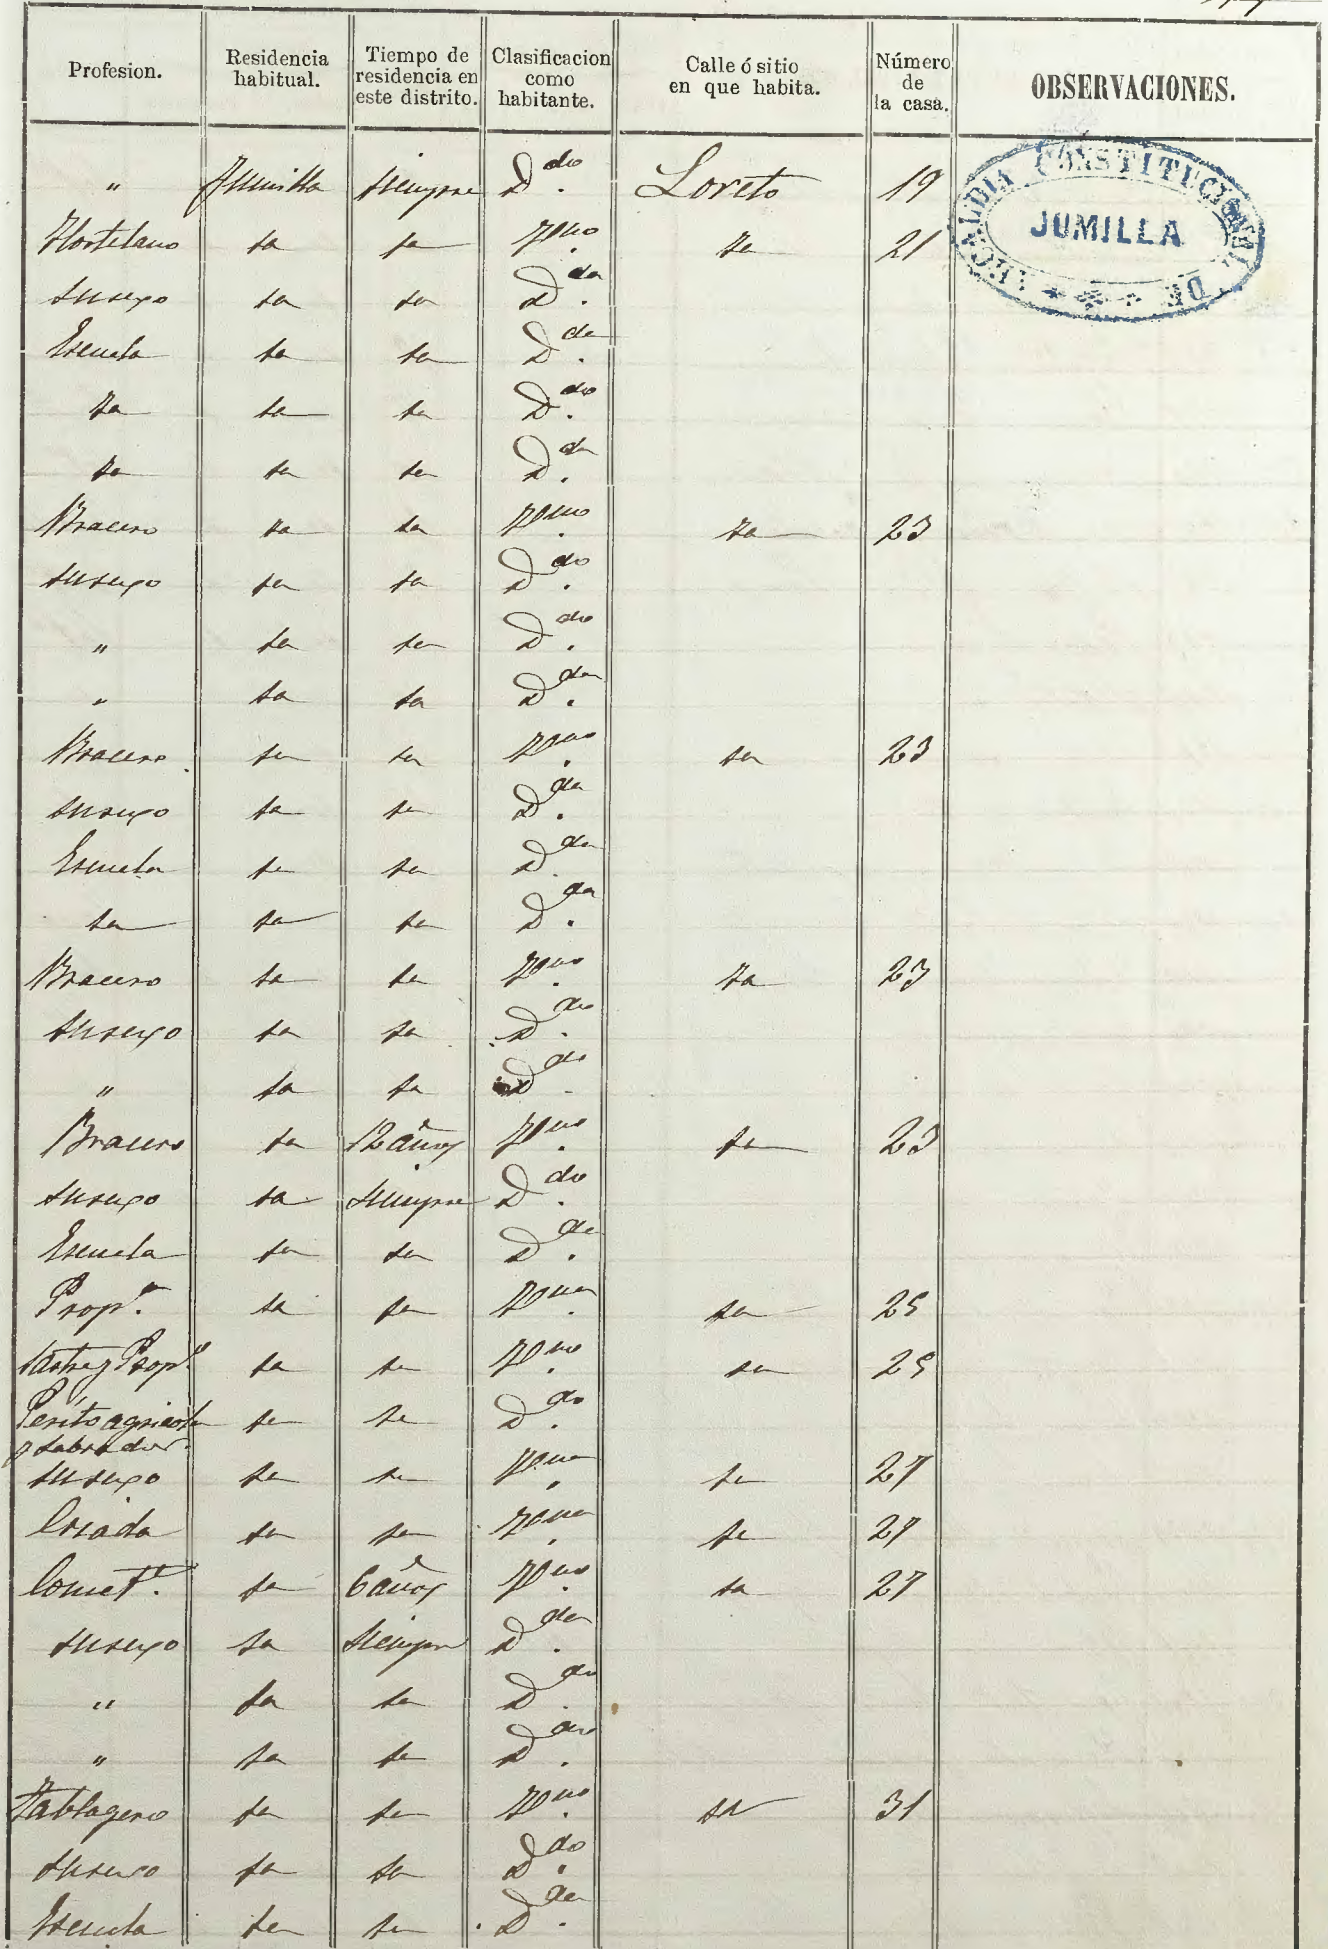 Profesion. Residencia habitual. Tiempo de residencia en este distrito. Clasificacion como habitante. Calle ó sitio en que habita. Número de la casa. OBSERVACIONES.
ALCALDIA CONSTITUCIONAL DE JUMILLA
" Jumilla siempre D.do Loreto 19
Hortelano ta ta V.no ta 21
Su sexo ta ta D.da
Escuela ta ta D.da
ta ta ta D.do
ta ta ta D.da
Bracero ta ta V.no ta 23
Su sexo ta ta D.do
" ta ta D.do
" ta ta D.da
Bracero ta ta V.no ta 23
Su sexo ta ta D.da
Escuela ta ta D.da
ta ta ta D.da
Bracero ta ta V.no ta 23
Su sexo ta ta D.do
" ta ta D.do
Bracero ta 12 años V.no ta 23
Su sexo ta Siempre D.do
Escuela ta ta D.da
Prop.a ta ta V.na ta 25
Sastre y Prop.o ta ta V.no ta 25
Perito agricola y Labrador ta ta D.do
Su sexo ta ta V.na ta 27
Criada ta ta V.na ta 27
Comet.e ta 6 años V.no ta 27
Su sexo ta Siempre D.da
" ta ta D.do
" ta ta D.do
Tablagero ta ta V.no ta 31
Su sexo ta ta D.do
Escuela ta ta D.da